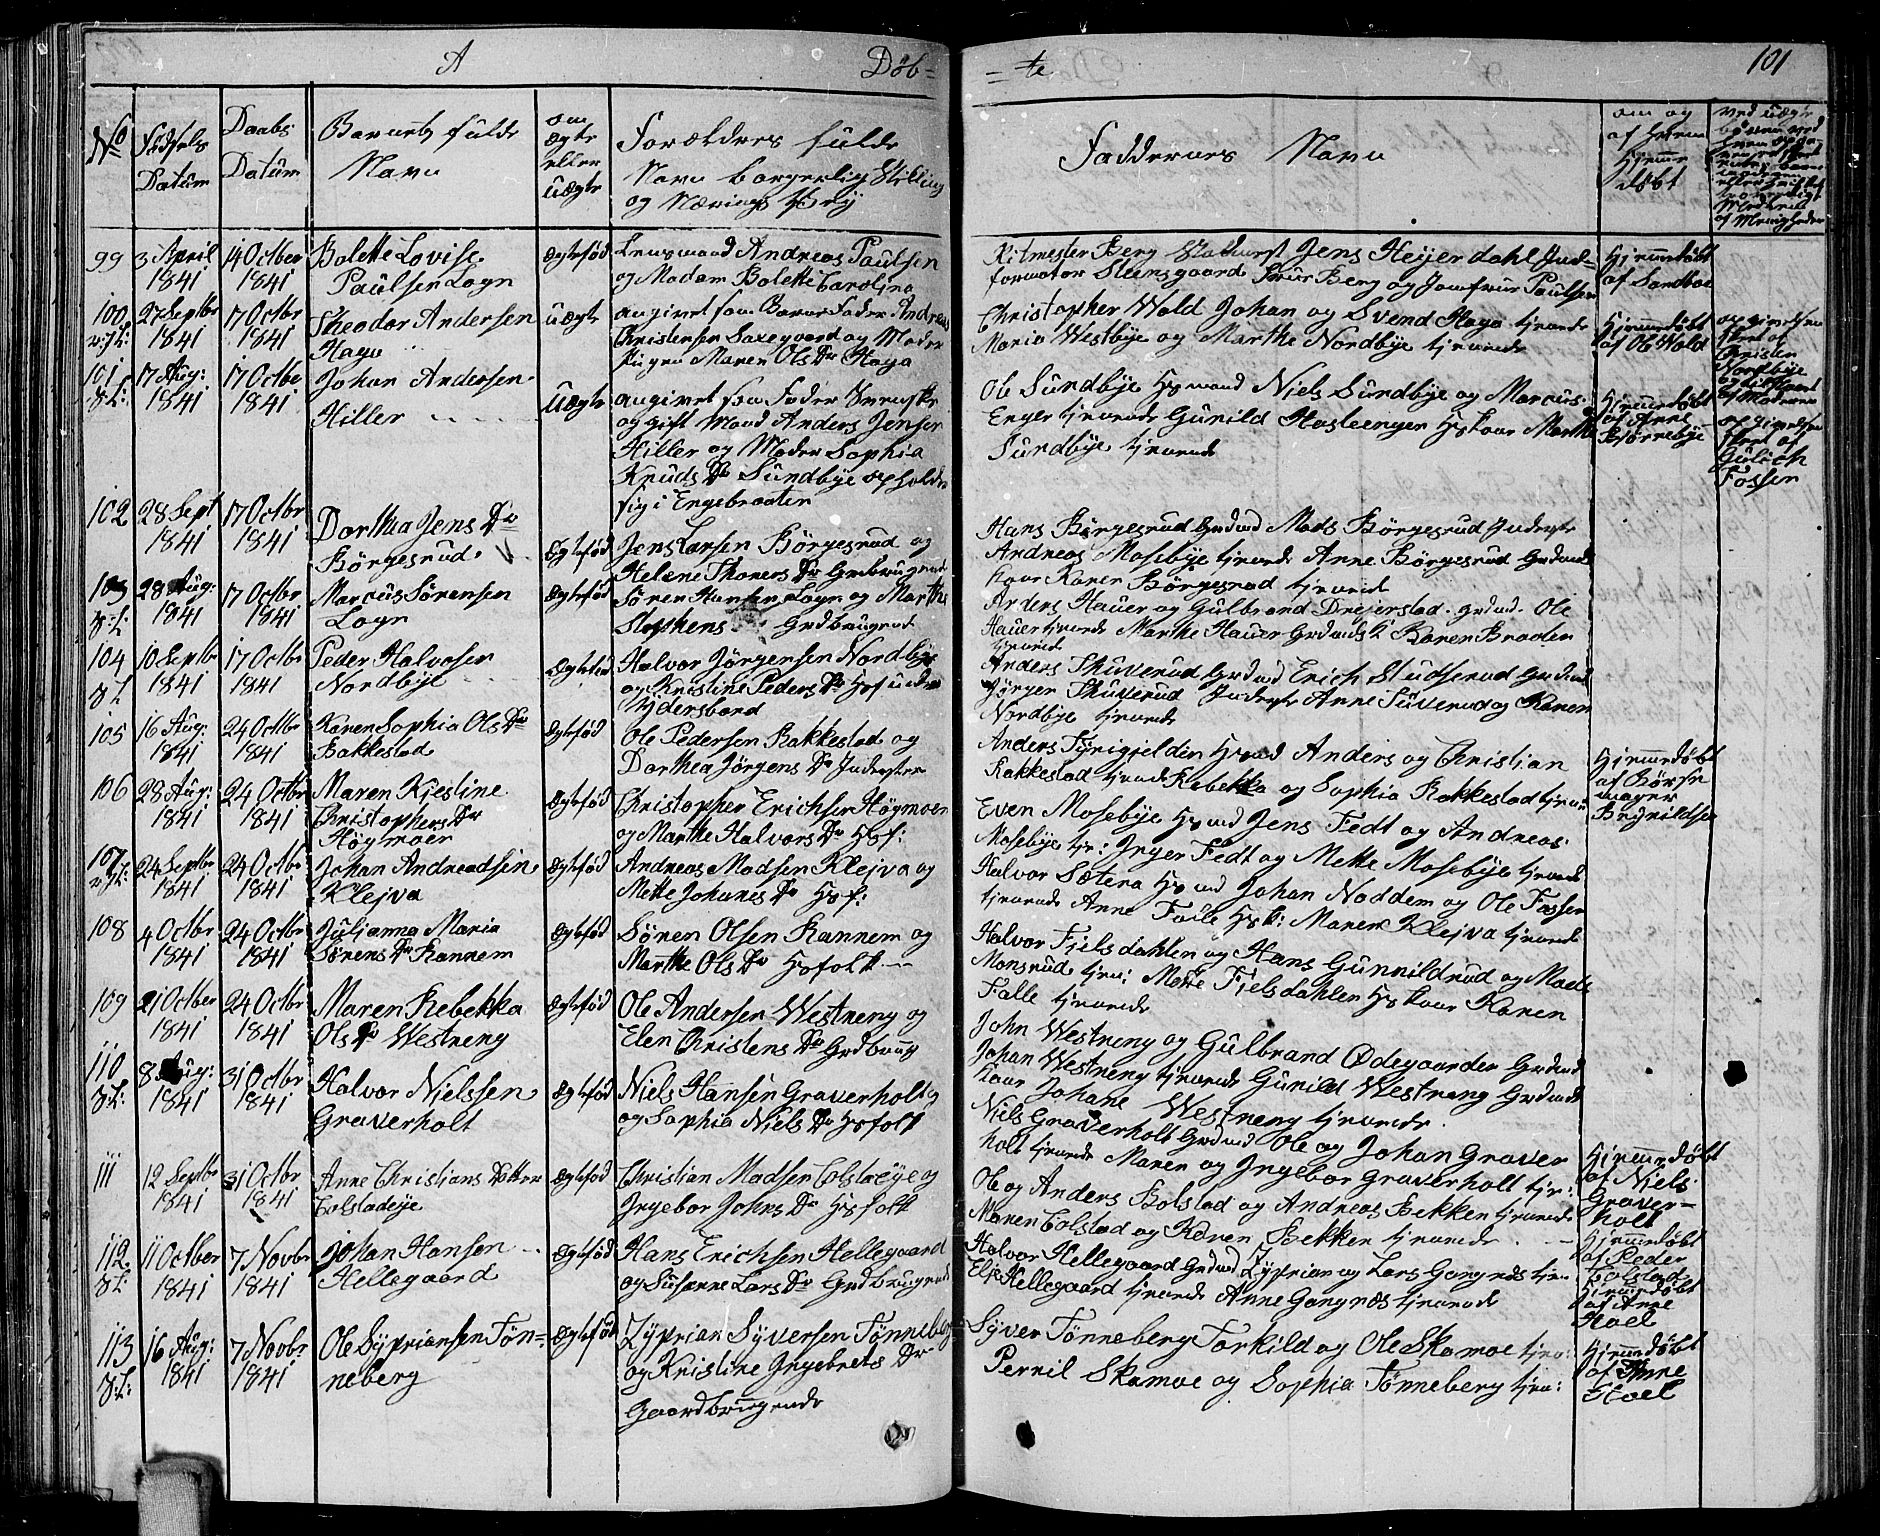 A Døb= = te 101
No
Fødsels Datum
Daabs Datum
Barnets fulde Navn
om ægte eller uægte
Forældres fulde Navn borgerlig Stilling og Nærings Vej
Faddernes Navn
om og af hvem hjemme døbt
99 3 April 1841 14 Octber 1841 Bolette Lovise Paulsen Logn Ægtefød
Lensmand Andreas Paulsen
og Madam Bolette Carolina
Ritmester Berg Jens Heyerdahl
Steensgaard Frue Berg og Jomfrue Paulsen
Hjemmedøbt af Sandboe
100 27 Septbr 1841 17 Octbr 1841 Theodor Andersen Haga uægte
angivet som Barne Fader Andreas
Christensen Saxegaard og Moder
Pigen Maren Ols Dr Haga
Christopher Wold Johan og Svend Haga tjenende
Maria Westbye og Marthe Nordbye tjenende
Hjemmedøbt af Ole Wold
101 17 Aug: 1841 17 Octbr 1841 Johan Andersen Hiller Uægte
angivet som Fader Svenske
og gift Mand Anders Jensen
Hiller og Moder Sophia
Knuds Dr Sundbye opholder
sig i Engebraaten
Ole Sundbye Hsmand Niels Sundbye og Marcus
Enger tjenende Gunild Hasleenger Hskone Marthe
Sundbye tjenende
Hjemmedøbt af Anne Bjørnebye
102 28 Sept 1841 17 Octbr 1841 Dorthea Jens Dr Börgesrud Ægtefød
Jens Larsen Börgesrud og
Helene Thoners Dr Grdbrugende
Hans Börgesrud Grdmd Mads Börgesrud Inderste
Andreas Mosebye tjenende Anne Börgesrud Grdmds
kone Karen Börgesrud tjenende
103 28 Aug: 1841 17 Octbr 1841 Marcus Sörensen Logn Ægtefød
Sören Hansen Logn og Marthe
Stephens Grdbrugende
Anders Hauer og Gulbrand Drejerstad Grdmd Ole
Hauer tjenende Marthe Hauer Grdmdsk Karen Braaten
tjenende
104 10 Septbr 1841 17 Octbr 1841 Peder Halvosen Nordbye Ægtefød
Halvor Jörgensen Nordbye
og Kristine Peders Dr Hsf under
Ydersbond
Anders Skuverud Grdmd Erich Studserud Grdmd
Jörgen Skuverud Inderste Anne Suverud og Karen
Nordbye tjenende
105 16 Aug: 1841 24 Octbr 1841 Karen Sophia Ols Dr Bakkestad Ægtefød
Ole Pedersen Bakkestad og
Dorthea Jörgens Dr Inderster
Anders Fyrigjelden Hsmd Anders og Christian
Bakkestad tjenende Rebekka og Sophia Bakkestad tjen:
Hjemmedøbt af Börsemager Bryrildsen
106 28 Aug: 1841 24 Octbr 1841 Maren Kjestine Christophers Dr Högmoen Ægtefød
Christopher Erichsen Högmoen
og Marthe Halvors Dr Hsf:
Even Mosebye Hsmd Jens Fedt og Andreas
Mosebye tje: Inger Fedt og Mette Mosebye tjenende
107 24 Septbr 1841 24 Octbr 1841 Johan Andreadsen Klejva Ægtefød
Andreas Madsen Klejva og
Mette Johanes Dr Hsf:
Halvor Sætera Hsmd Johan Noddem og Ole Fossen
tjenende Anne Faile Hsk: Maren Klejva tjenende
108 4 Octbr 1841 24 Octbr 1841 Julianna Maria Sörens Dr Kannem Ægtefød
Sören Olsen Kannem og
Marthe Ols Dr Hsfolk
Halvor Fjelsdahlen og Hans Gunnildrud og Mads
Monsrud tjen: Mette Fjelsdahlen Hskone Karen
Falle tjenende
109 21 Octber 1841 24 Octbr 1841 Maren Rebekka Ols Dr Westreng Ægtefød
Ole Andersen Westreng og
Elen Christens Dr Grdbrug
John Westreng og Gulbrand Ödegaarden Grdmd
Johan Westreng tjenende Gunild Westreng Grdmds
kone Johane Westreng tjenende
110 8 Aug: 1841 31 Octbr 1841 Halvor Nielssen Graverholt Ægtefød
Niels Hansen Graverholt
og Sophia Niels Dr Hsfolk
Niels Graverholt Grdmd Ole og Johan Graver
holt tjenende Maren og Ingebor Graverholt tje:
Hjemmedøbt af Niels Graverholt
111 12 Septbr 1841 31 Octbr 1841 Anne Christians Dotter Colstadeye Ægtefød
Christian Madsen Colstaeye og
Ingebor Johns Dr Hsfolk
Ole og Anders Bolstad og Andreas Bekken tjenende
Maren Colstad og Karen Bekken tjenende
Hjemmedøbt af Peder Colstad
112 11 October 1841 7 Novbr 1841 Johan Hansen Hellegaard Ægtefød
Hans Erichsen Hellegaard
og Susanne Lars Dr Grdbrugende
Halvor Hellegaard Grdmd Zyprian og Lars Gangnæs tjen
Elje Hellegaard tjenende Anne Gangnæs tjenende
Hjemmedøbt af Anne Hoel
113 16 Aug: 1841 7 Novbr 1841 Ole Syprianssen Tönneberg Ægtefød
Zyprian Syversen Tönneberg
og Kristine Ingebrets Dr
Gaardbrugende
Syver Tönneberg Torkild og Ole Skamoe tjen:
Pernil Skamoe og Sophia Tönneberg tjen:
Hjemmedøbt af Anne Hoel